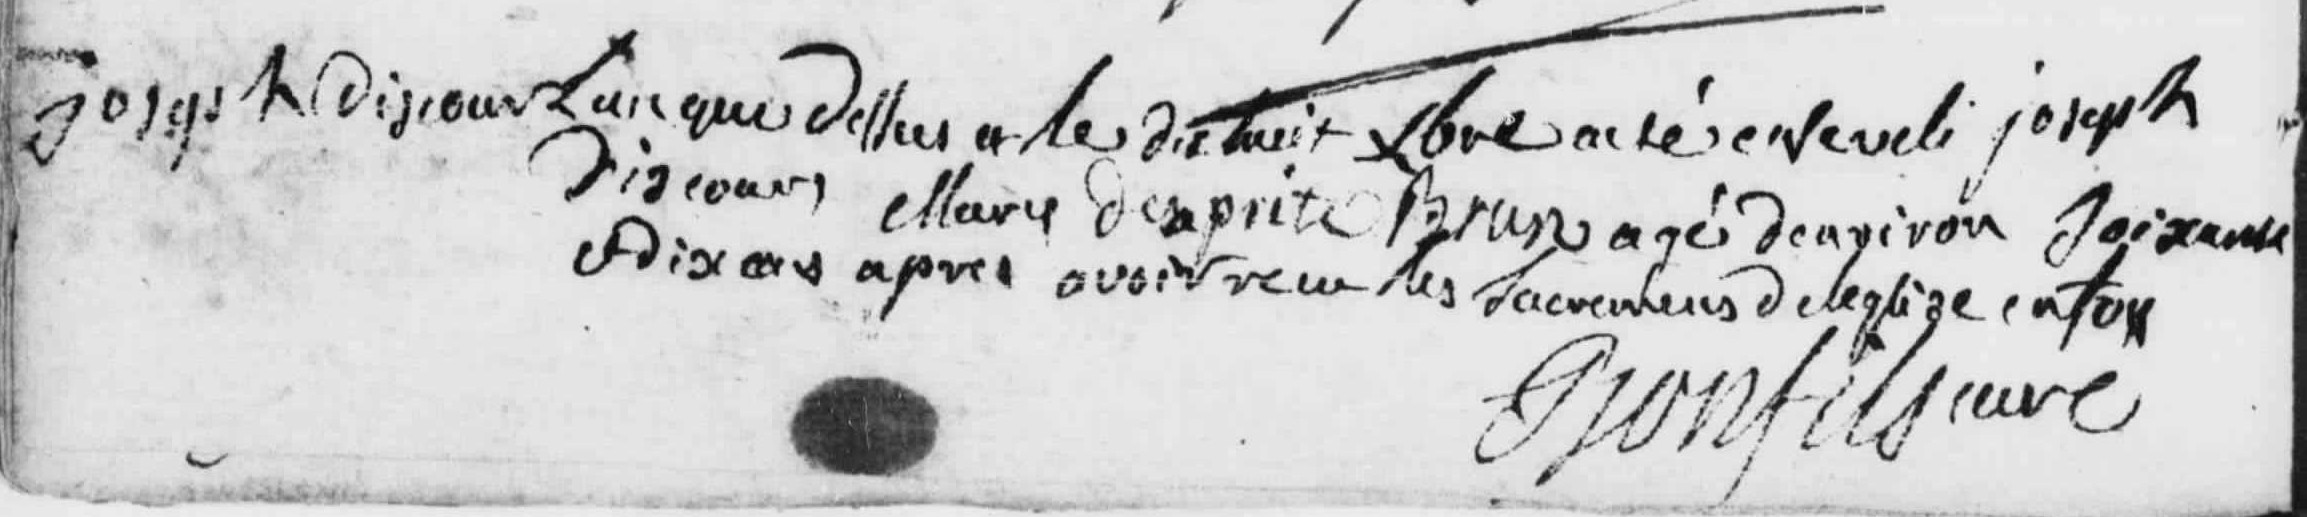 joseph Discours Lan que dessus et le dixhuit xbre a eté enseveli joseph
Discours Maris desprite Brun agé denviron Soixante
et dix ans apres avoir receu les Sacremens de leglise en foy
Bonfils cure